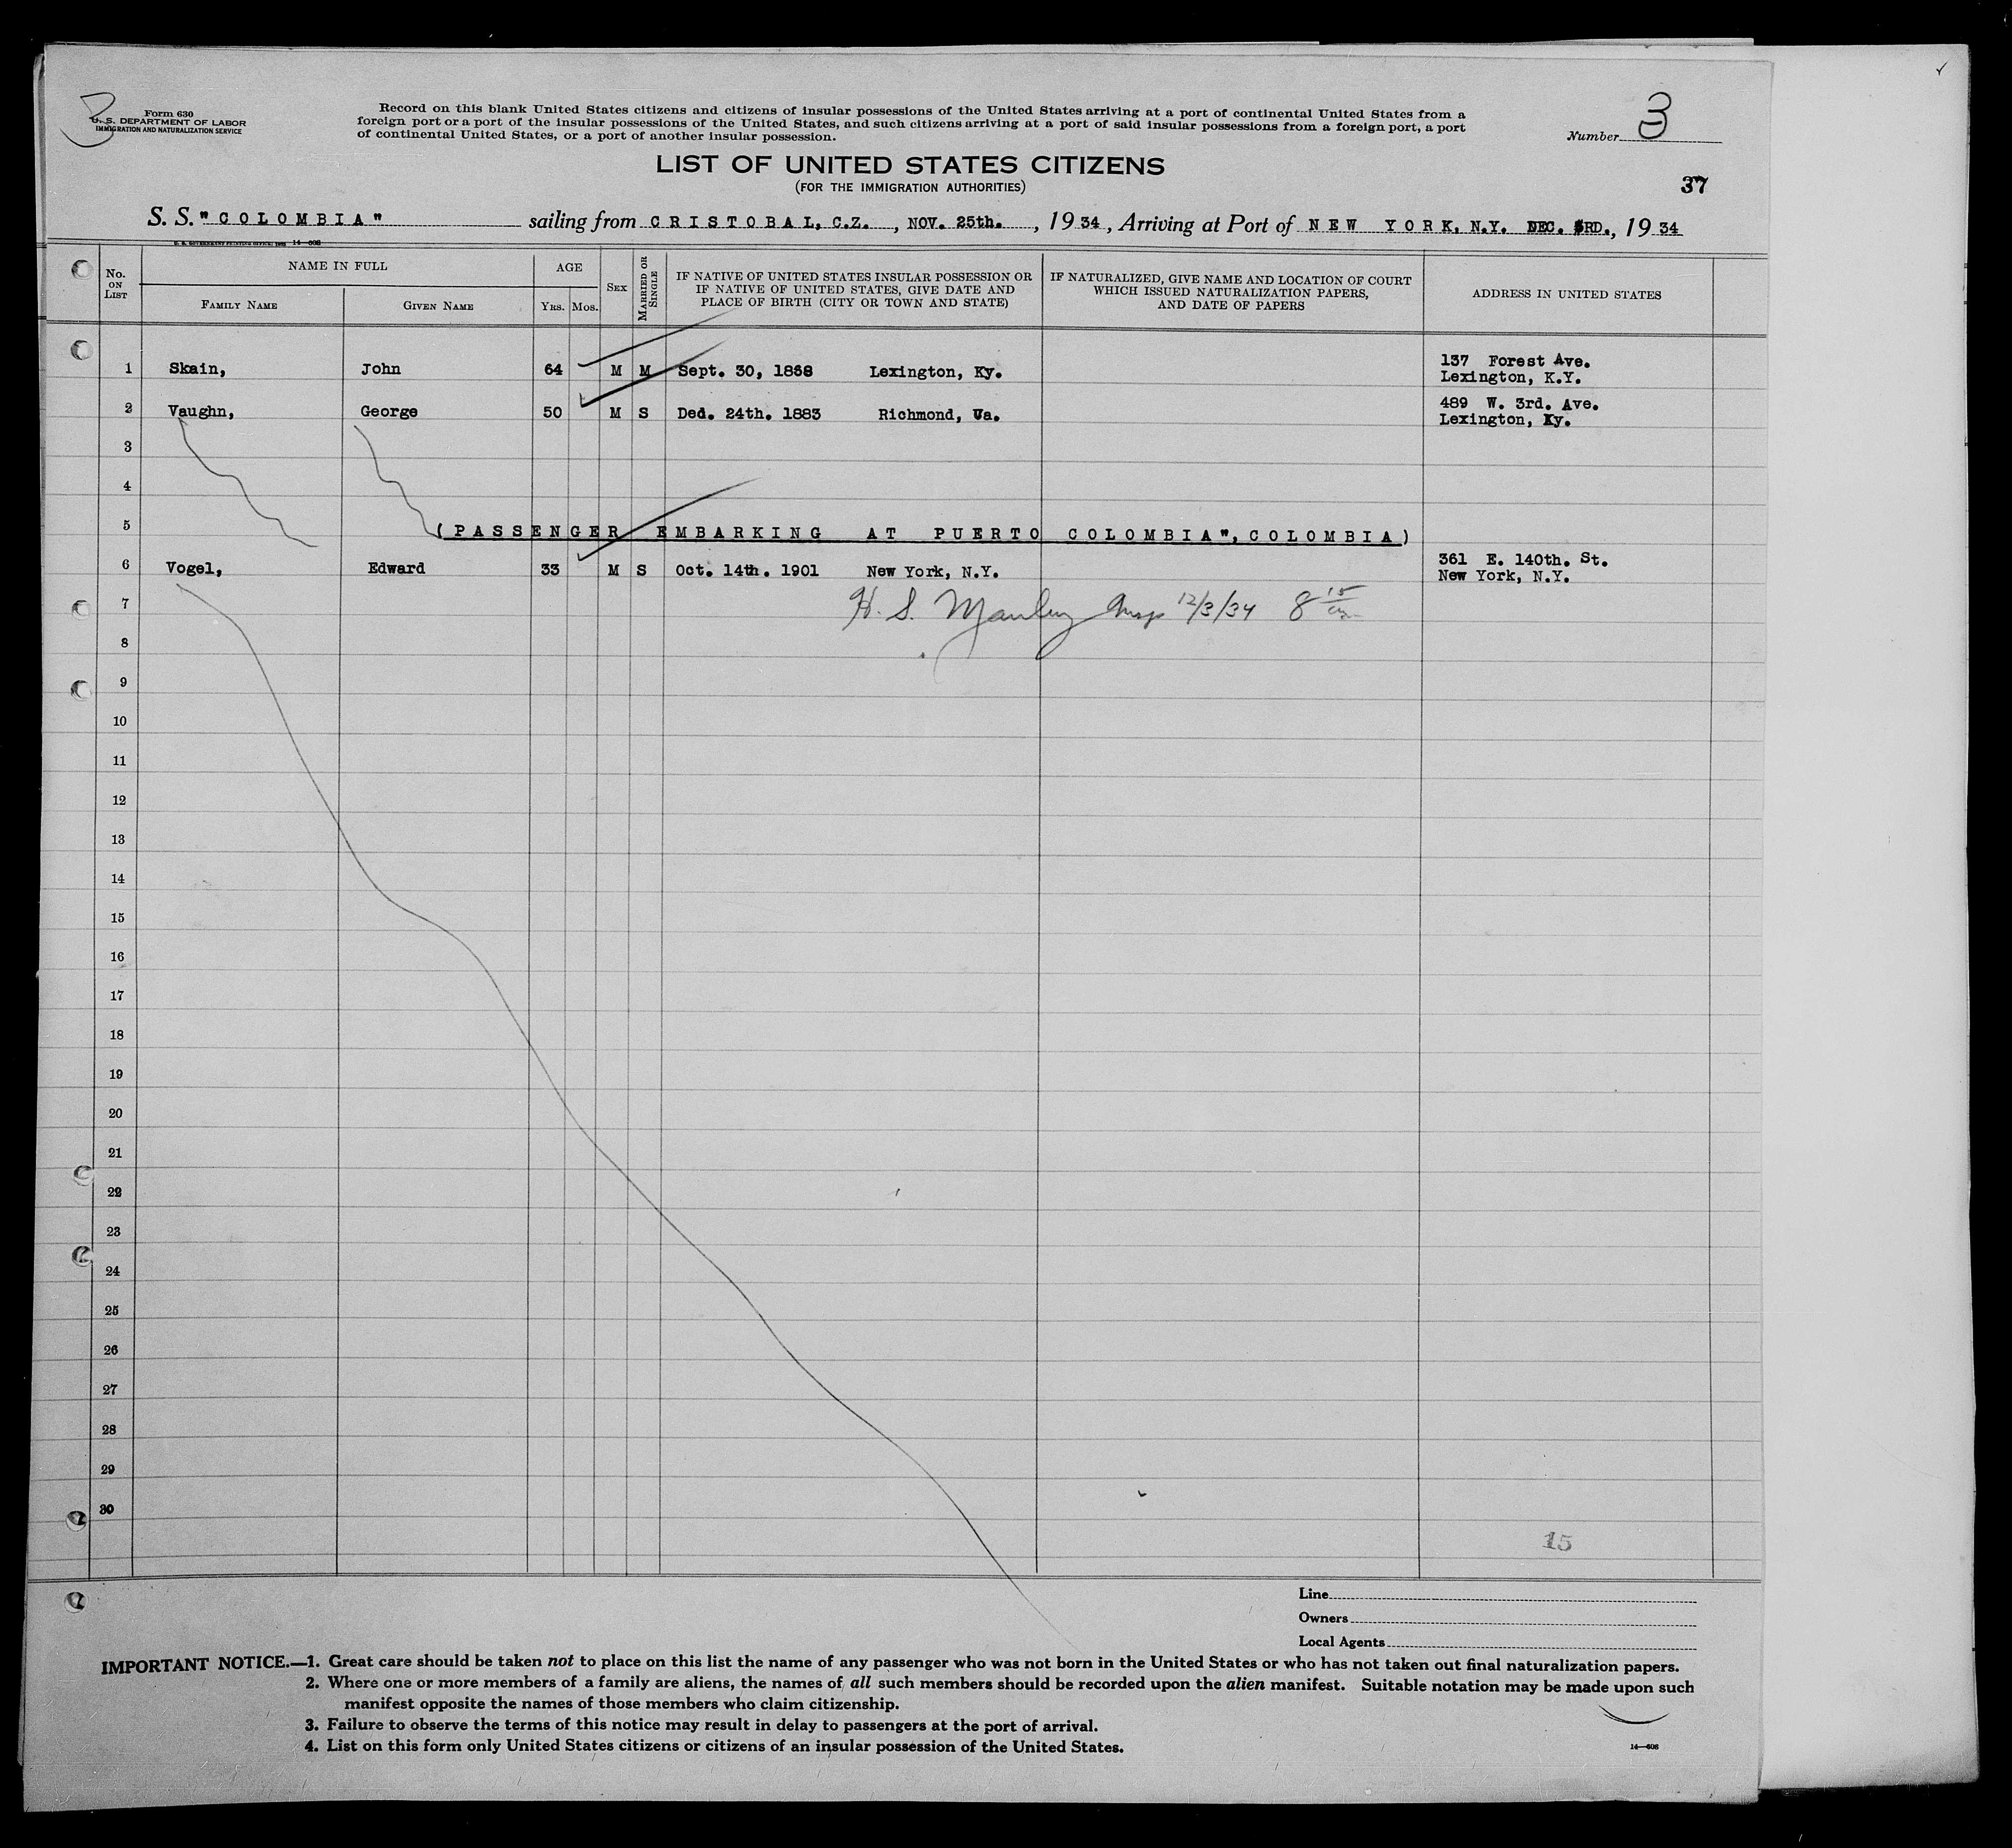 3
Form 630
U. S. DEPARTMENT OF LABOR
IMMIGRATION AND NATURALIZATION SERVICE
Record on this blank United States citizens and citizens of insular possessions of the United States arriving at a port of continental United States from a
foreign port or a port of the insular possessions of the United States, and such citizens arriving at a port of said insular possessions from a foreign port, a port
of continental United States, or a port of another insular possession.
Number 3
LIST OF UNITED STATES CITIZENS
(FOR THE IMMIGRATION AUTHORITIES)
37
S. S. "COLOMBIA" sailing from CRISTOBAL, C.Z., NOV. 25th., 1934, Arriving at Port of NEW YORK, N.Y. DEC. 3RD., 1934
14—608
No. ON LIST
NAME IN FULL
FAMILY NAME
GIVEN NAME
AGE
YRS. MOS.
SEX
MARRIED OR SINGLE
IF NATIVE OF UNITED STATES INSULAR POSSESSION OR
IF NATIVE OF UNITED STATES, GIVE DATE AND
PLACE OF BIRTH (CITY OR TOWN AND STATE)
IF NATURALIZED, GIVE NAME AND LOCATION OF COURT
WHICH ISSUED NATURALIZATION PAPERS,
AND DATE OF PAPERS
ADDRESS IN UNITED STATES
1 Skain, John 64 M M Sept. 30, 1868 Lexington, Ky. 137 Forest Ave.
Lexington, K.Y.
2 Vaughn, George 50 M S Ded. 24th. 1883 Richmond, Va. 489 W. 3rd. Ave.
Lexington, Ky.
3
4
5 (PASSENGER EMBARKING AT PUERTO COLOMBIA", COLOMBIA)
6 Vogel, Edward 33 M S Oct. 14th. 1901 New York, N.Y. 361 E. 140th. St.
New York, N.Y.
7 H. S. 12/3/34 8 15
8
9
10
11
12
13
14
15
16
17
18
19
20
21
22
23
24
25
26
27
28
29
30
15
Line
Owners
Local Agents
IMPORTANT NOTICE.—1. Great care should be taken not to place on this list the name of any passenger who was not born in the United States or who has not taken out final naturalization papers.
2. Where one or more members of a family are aliens, the names of all such members should be recorded upon the alien manifest. Suitable notation may be made upon such
manifest opposite the names of those members who claim citizenship.
3. Failure to observe the terms of this notice may result in delay to passengers at the port of arrival.
4. List on this form only United States citizens or citizens of an insular possession of the United States.
14—608